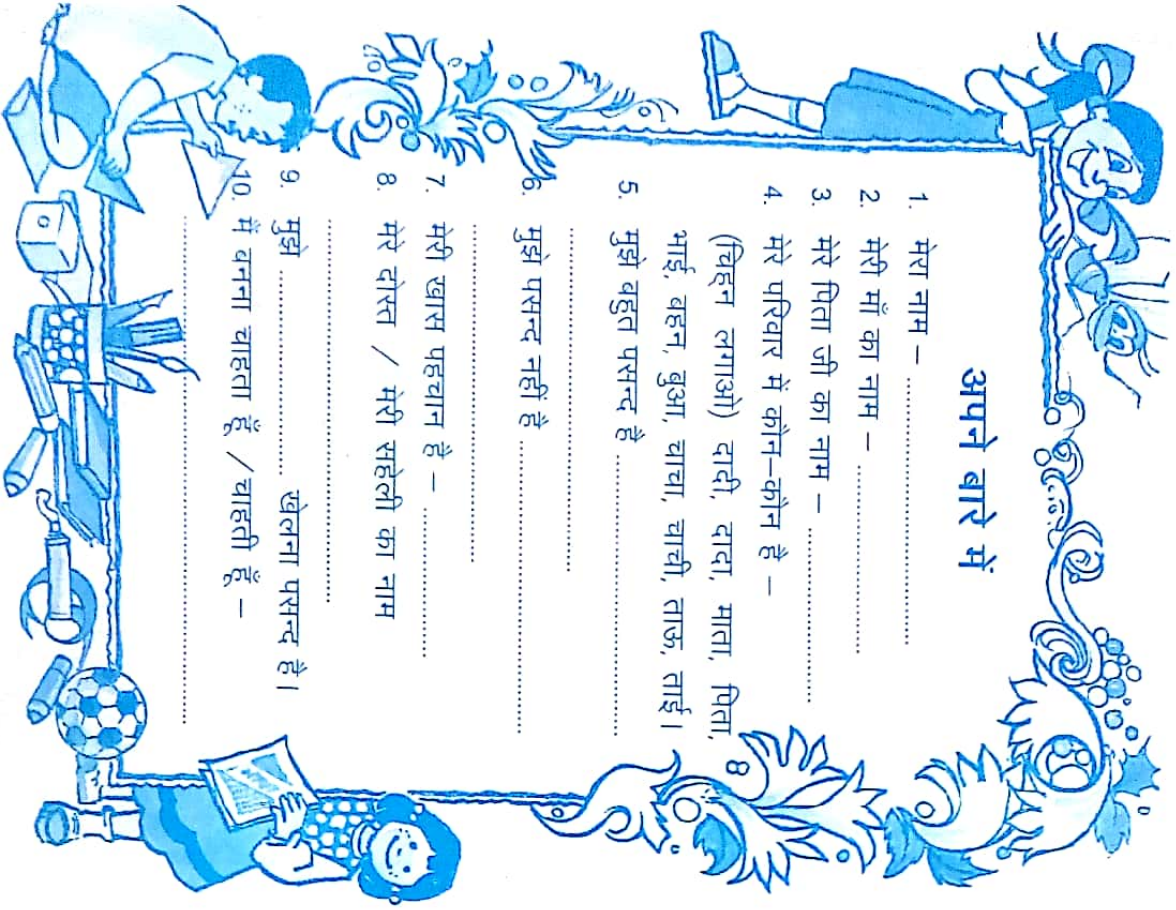 अपने बारे में
1. मेरा नाम – ....................
2. मेरी माँ का नाम – ....................
3. मेरे पिता जी का नाम – ....................
4. मेरे परिवार में कौन-कौन है –
(चिह्न लगाओ) दादी, दादा, माता, पिता,
भाई, बहन, बुआ, चाचा, चाची, ताऊ, ताई।
5. मुझे बहुत पसन्द है ....................
....................
6. मुझे पसन्द नहीं है ....................
....................
7. मेरी खास पहचान है – ....................
8. मेरे दोस्त / मेरी सहेली का नाम
....................
9. मुझे .................... खेलना पसन्द है।
10. मैं बनना चाहता हूँ / चाहती हूँ –
....................